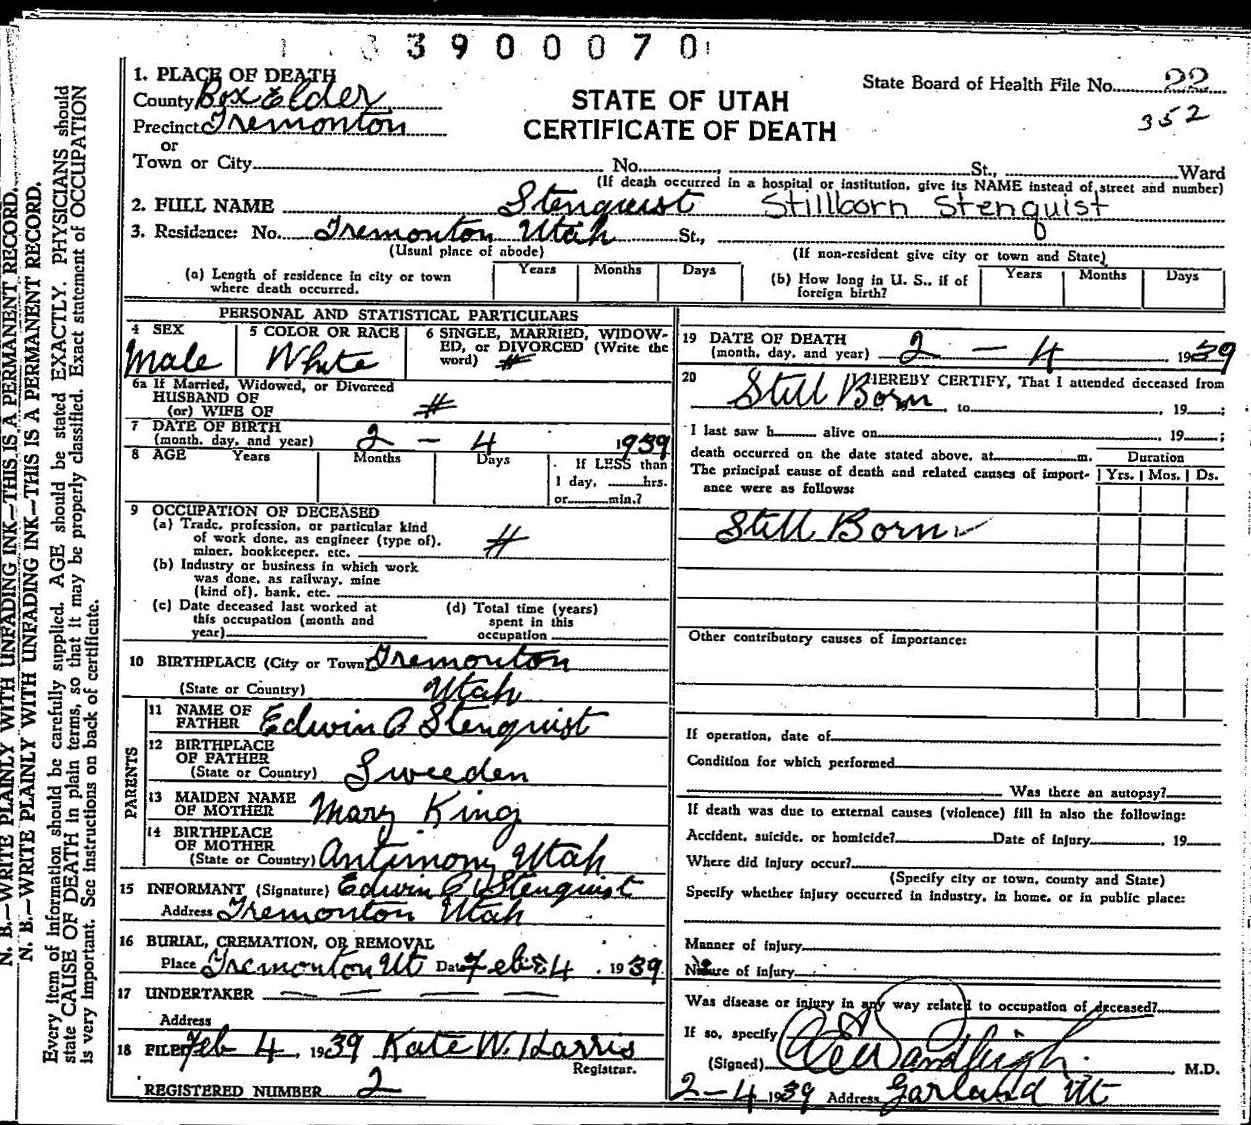 3900070
1. PLACE OF DEATH
County Box Elder
Precinct Tremonton
or
Town or City No. St., Ward
State Board of Health File No. 22
352
STATE OF UTAH
CERTIFICATE OF DEATH
(If death occurred in a hospital or institution, give its NAME instead of street and number)
2. FULL NAME Stenquist Stillborn Stenquist
3. Residence: No. Tremonton Utah St.,
(Usual place of abode) (If non-resident give city or town and State)
(a) Length of residence in city or town where death occurred. Years Months Days
(b) How long in U. S., if of foreign birth? Years Months Days
PERSONAL AND STATISTICAL PARTICULARS
4 SEX Male
5 COLOR OR RACE White
6 SINGLE, MARRIED, WIDOW-
ED, or DIVORCED (Write the
word) #
6a If Married, Widowed, or Divorced
HUSBAND OF
(or) WIFE OF #
7 DATE OF BIRTH
(month, day, and year) 2 - 4 1939
8 AGE Years Months Days If LESS than
1 day, hrs.
or min.?
9 OCCUPATION OF DECEASED
(a) Trade, profession, or particular kind
of work done, as engineer (type of),
miner, bookkeeper, etc. #
(b) Industry or business in which work
was done, as railway, mine
(kind of), bank, etc.
(c) Date deceased last worked at
this occupation (month and
year)
(d) Total time (years)
spent in this
occupation
10 BIRTHPLACE (City or Town) Tremonton
(State or Country) Utah
PARENTS
11 NAME OF
FATHER Edwin O Stenquist
12 BIRTHPLACE
OF FATHER
(State or Country) Sweeden
13 MAIDEN NAME
OF MOTHER Mary King
14 BIRTHPLACE
OF MOTHER
(State or Country) Antimony Utah
15 INFORMANT (Signature) Edwin O Stenquist
Address Tremonton Utah
16 BURIAL, CREMATION, OR REMOVAL
Place Tremonton Ut Date Feb 4, 1939
17 UNDERTAKER
Address
18 FILED Feb 4, 1939 Kate W. Harris
Registrar.
REGISTERED NUMBER 2
19 DATE OF DEATH
(month, day, and year) 2 - 4, 1939
20 HEREBY CERTIFY, That I attended deceased from
Still Born to , 19 ;
I last saw h alive on , 19 ;
death occurred on the date stated above, at m.
The principal cause of death and related causes of import-
ance were as follows:
Duration
Yrs. Mos. Ds.
Still Born
Other contributory causes of importance:
If operation, date of
Condition for which performed
Was there an autopsy?
If death was due to external causes (violence) fill in also the following:
Accident, suicide, or homicide? Date of injury , 19
Where did injury occur?
(Specify city or town, county and State)
Specify whether injury occurred in industry, in home, or in public place:
Manner of injury
Nature of injury
Was disease or injury in any way related to occupation of deceased?
If so, specify
(Signed) , M.D.
2-4 1939 Address Garland Ut
N. B.—WRITE PLAINLY WITH UNFADING INK—THIS IS A PERMANENT RECORD.
N. B.—WRITE PLAINLY WITH UNFADING INK—THIS IS A PERMANENT RECORD.
Every item of information should be carefully supplied. AGE should be stated EXACTLY. PHYSICIANS should
state CAUSE OF DEATH in plain terms, so that it may be properly classified. Exact statement of OCCUPATION
is very important. See instructions on back of certificate.